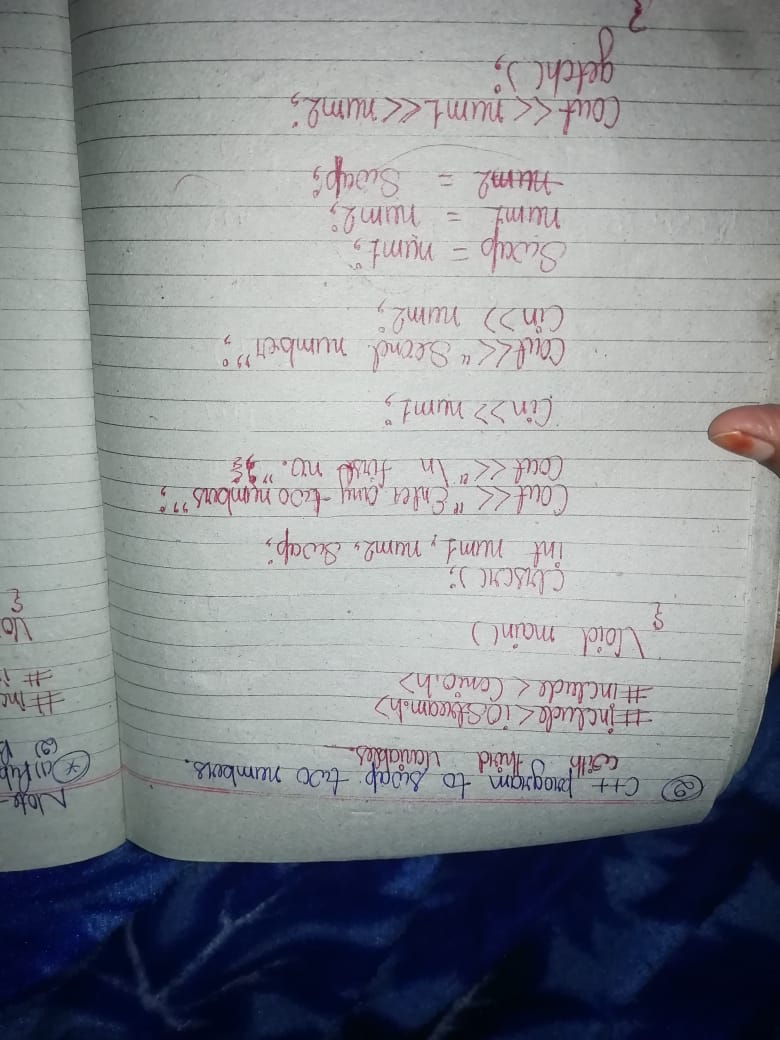 (29) C++ program to swap two numbers.
with third variables.
#include<iostream.h>
#include<Conio.h>
Void main()
{
Clrscr();
int num1, num2, Swap;
Cout<<"Enter any two numbers";
Cout<<"\n first no.";
Cin>>num1;
Cout<<"Second number";
Cin>>num2;
Swap = num1;
num1 = num2;
num2 = Swap;
Cout<<num1<<num2;
getch();
}
Note-
(2)
#inc
# i
Vo
{